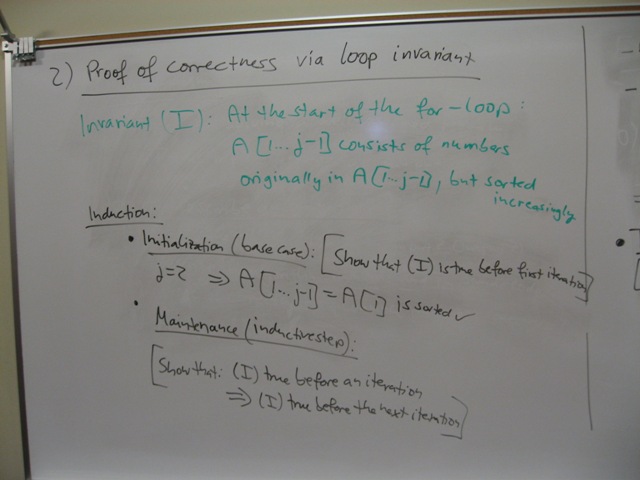 2) Proof of correctness via loop invariant
Invariant (I): At the start of the for-loop:
A[1...j-1] consists of numbers
originally in A[1...j-1], but sorted
increasingly
Induction:
• Initialization (base case): [Show that (I) is true before first iteration]
j=2 ⇒ A[1...j-1] = A[1] is sorted ✓
• Maintenance (inductive step):
[Show that: (I) true before an iteration
⇒ (I) true before the next iteration]